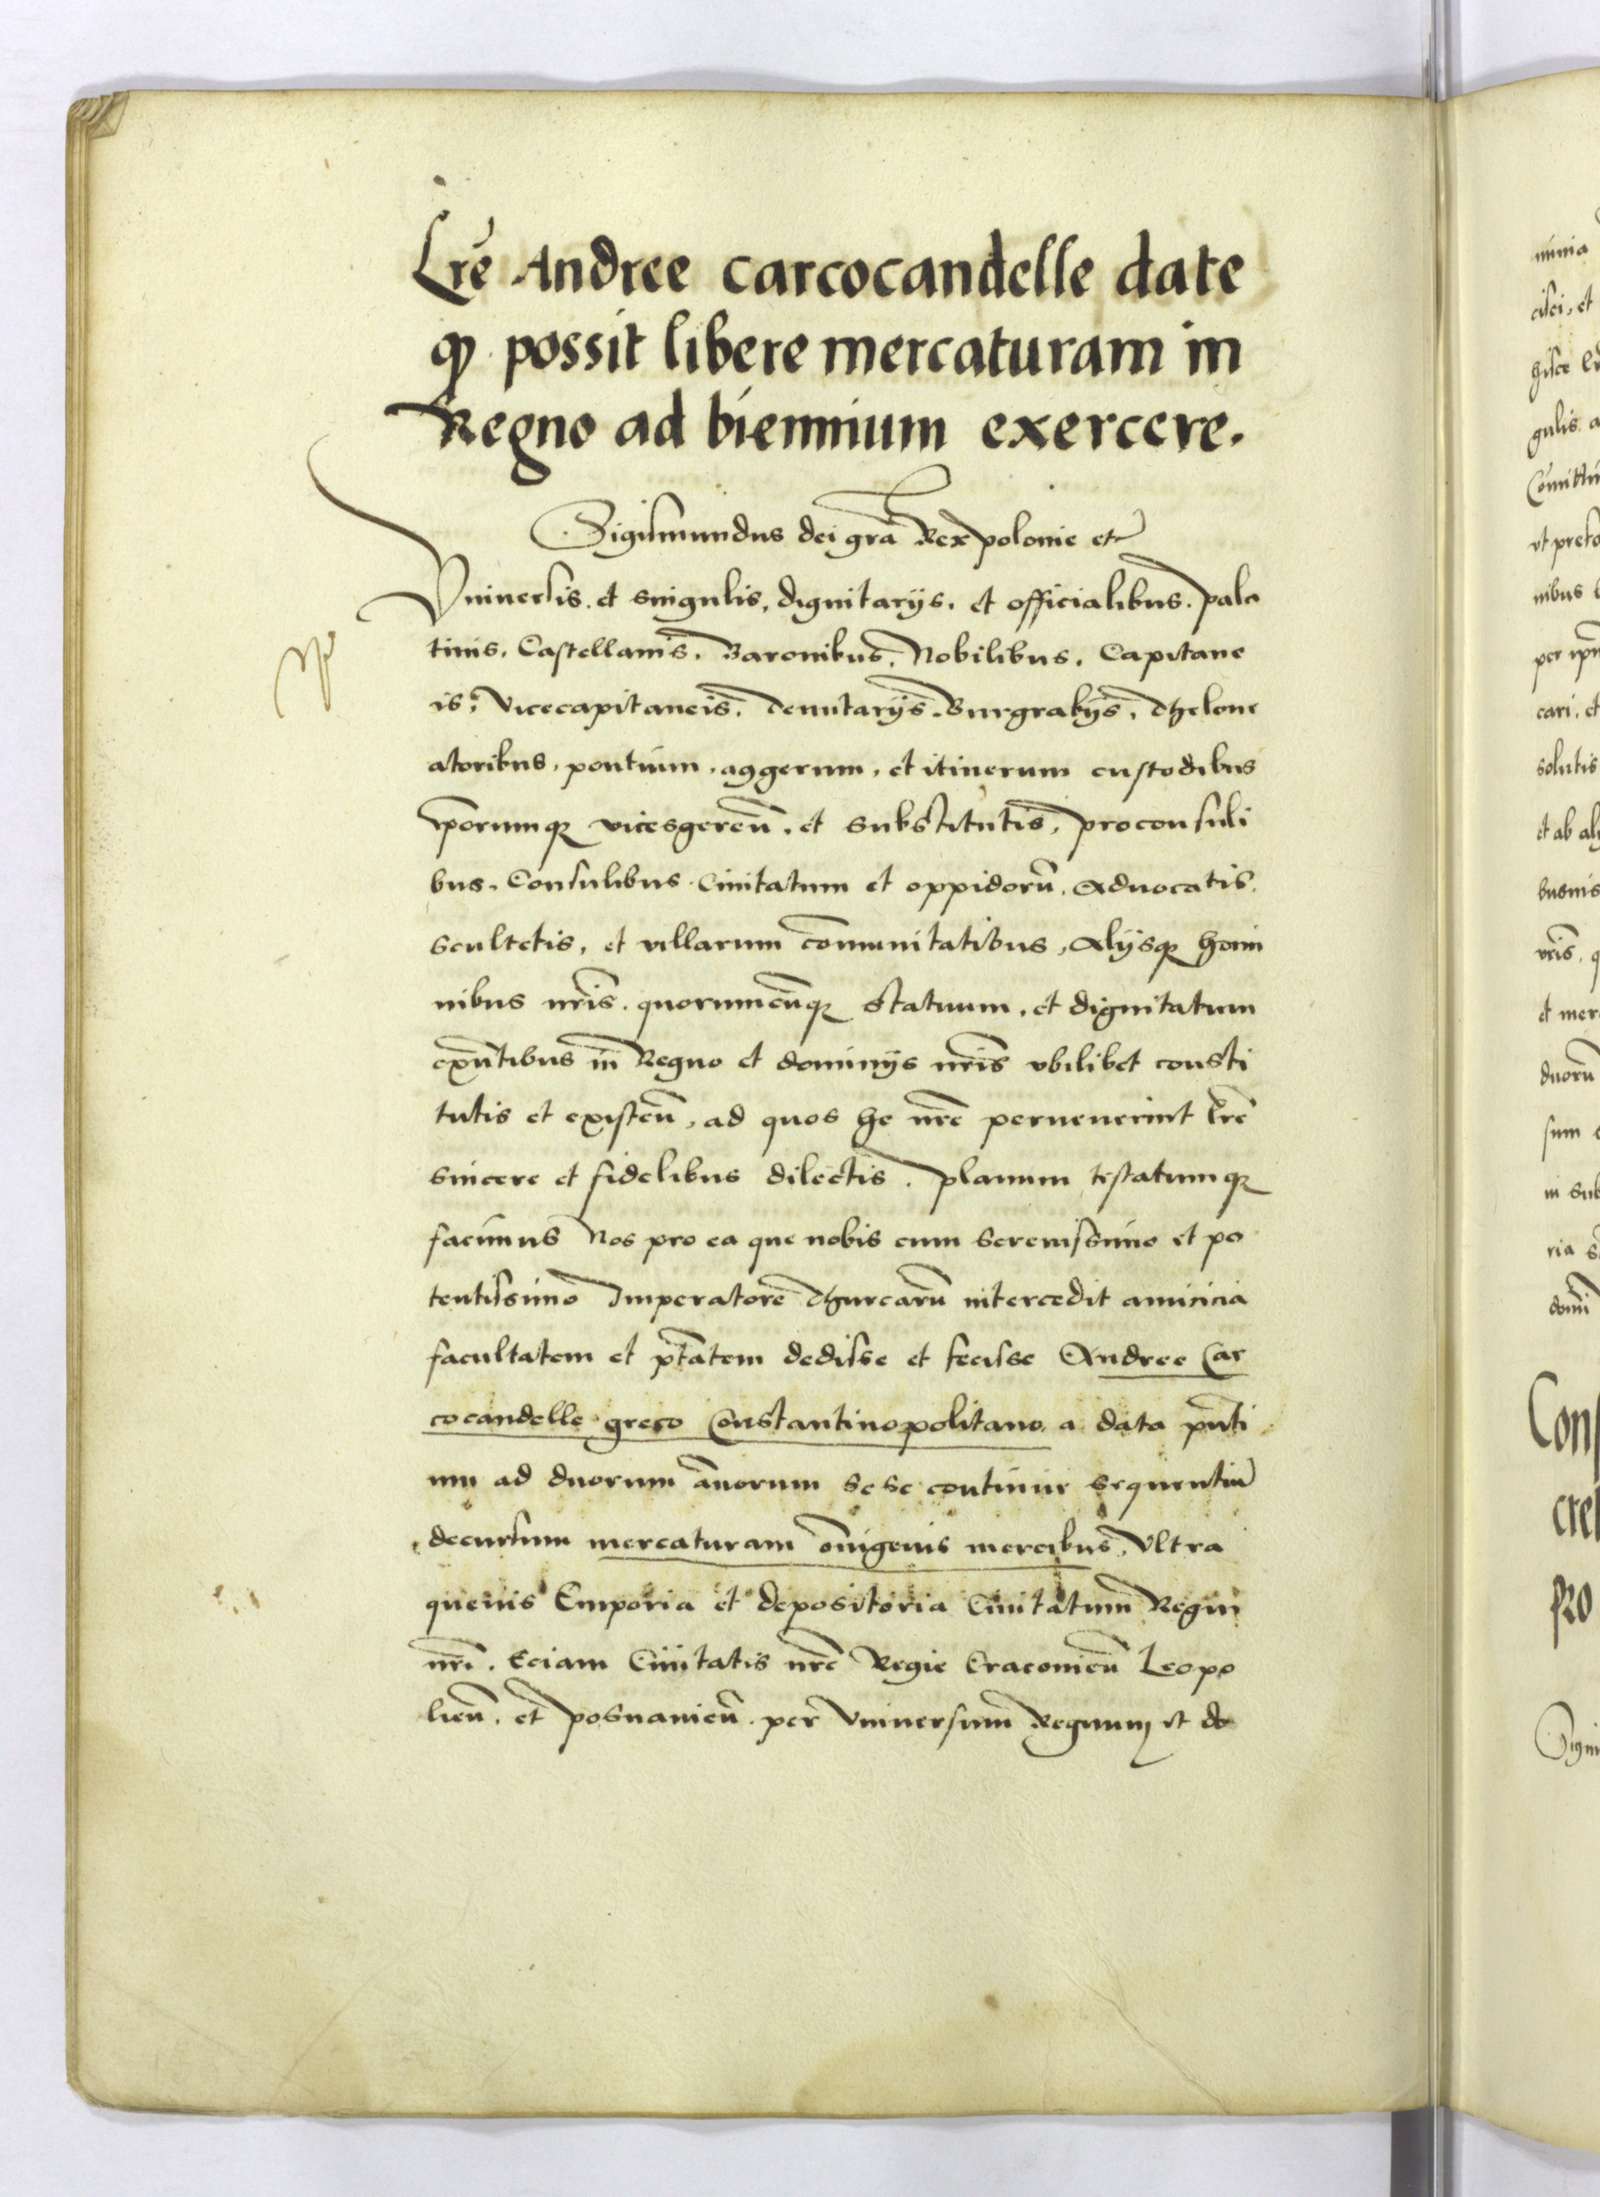 Lrē Andree carcocandelle date
ꝙ possit libere mercaturam in
Regno ad biennium exercere.
Sigismundus dei gra Rex polonie etc
Vniuersis. et singulis, dignitarijs. et officialibus. pala
tinis. Castellanis. Baronibus. Nobilibus. Capitane
is. vicecapitaneis. Tenutarijs. Burgrabijs. Thelone
atoribus. pontium. aggerum. et itinerum custodibus
ipsorumqꝫ vicesgereñ. et substitutis. proconsuli
bus. Consulibus Ciuitatum et oppidorū. Aduocatis.
Scultetis. et villarum cōmunitatibus. Alijsqꝫ homi
nibus nrīs. quorumcūqꝫ statuum. et dignitatum
exn̄tibus in Regno et dominijs nrīs vbilibet consti
tutis et existeñ. ad quos he nrē peruenerint lrē
sincere et fidelibus dilectis. planum testatumqꝫ
facimus Nos pro ea que nobis cum Serenissimo et po
tentissimo Imperatore Thurcarū intercedit amicicia
facultatem et ptātem dedisse et fecisse Andree Car
cocandelle greco Constantinopolitano. a data pn̄ti
um ad duorum ānorum sese continue sequentiū
decursum mercaturam oīnigenis mercibus. Vltra
queuis Emporia et depositoria Ciuitatum Regni
nrī. Eciam Ciuitatis nrē Regie Cracouieñ Leopo
lieñ. et posnanieñ. per Vniuersum Regnum et do
minia
cisci. et
hisce
gulis a
vt preto
nibus
cari. et
solutis
et ab
vrīs. q
et mer
duorū
sum
in sub
ria
domi
Cons
cre
pro